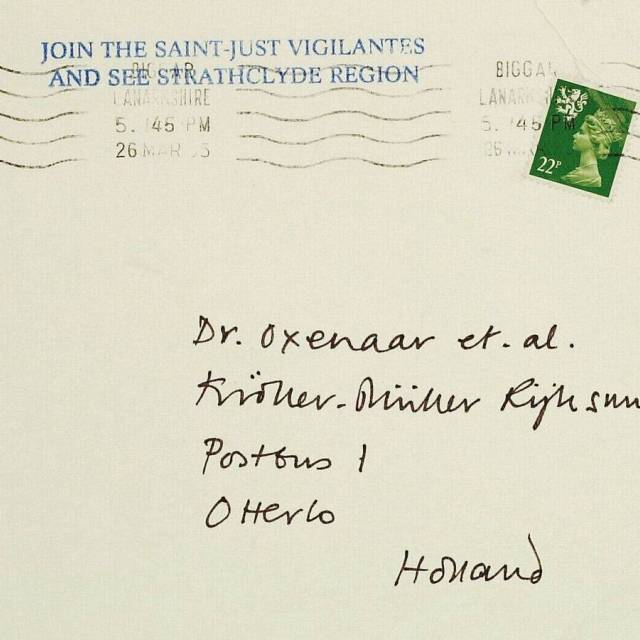 JOIN THE SAINT-JUST VIGILANTES
AND SEE STRATHCLYDE REGION
BIGGAR
LANARKSHIRE
5. 45 PM
26 MAR
BIGGAR
5. 45 PM
22P
Dr. Oxenaar et. al.
Kröller-Müller Rijksmu
Postbus 1
Otterlo
Holland